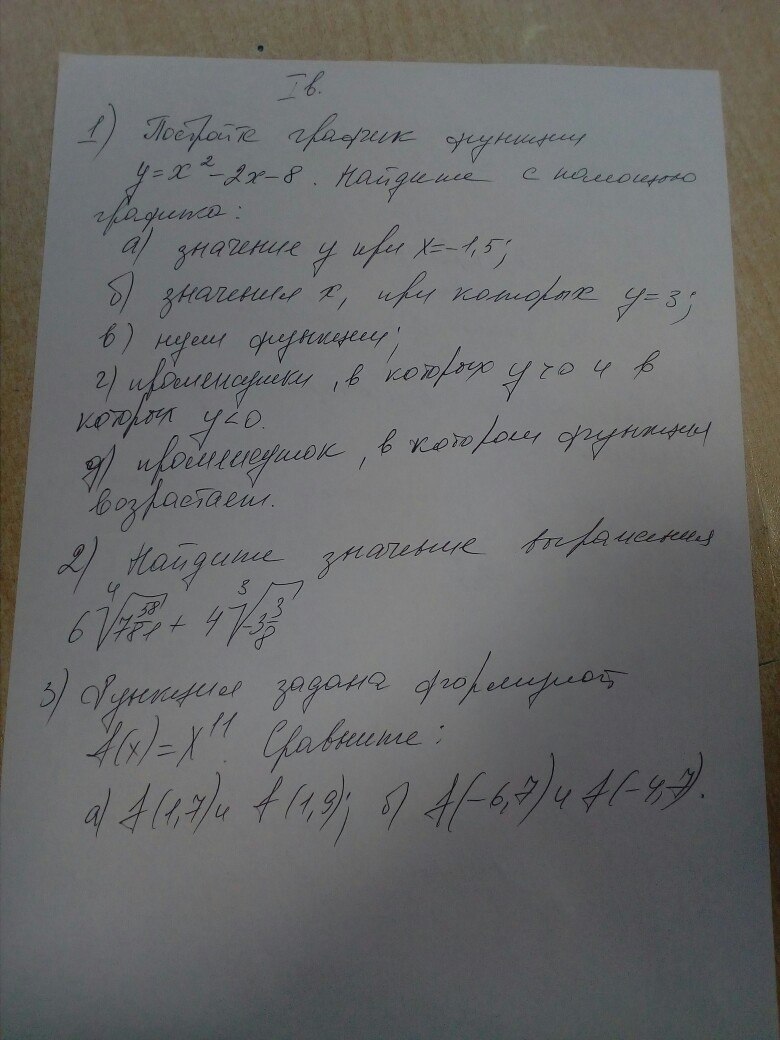 I в.
1) Постройте график функции
y=x²-2x-8. Найдите с помощью
графика:
а) значение y при x=-1,5;
б) значения x, при которых y=3;
в) нули функции;
г) промежутки, в которых y>0 и в
которых y<0.
д) промежуток, в котором функция
возрастает.
2) Найдите значение выражения
6 ⁴√(7 38/81) + 4 ³√(-3 3/8)
3) Функция задана формулой
f(x)=x¹¹. Сравните:
а) f(1,7) и f(1,9); б) f(-6,7) и f(-4,7).